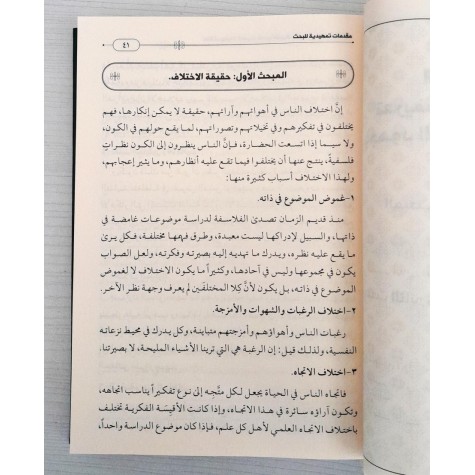 مقدمات تمهيدية للبحث
٤١
المبحث الأول: حقيقة الاختلاف.
إنَّ اختلاف الناس في أهوائهم وآرائهم، حقيقة لا يمكن إنكارها، فهم
يختلفون في تفكيرهم وفي تخيلاتهم وتصوراتهم، لما يقع حولهم في الكون،
ولا سيما إذا اتسعت الحضارة، فإنَّ الناس ينظرون إلى الكون نظراتٍ
فلسفيةً، ينتج عنها أن يختلفوا فيما تقع عليه أنظارهم، وما يثير إعجابهم،
ولهذا الاختلاف أسباب كثيرة منها:
١-غموض الموضوع في ذاته.
منذ قديم الزمان تصدىٰ الفلاسفة لدراسة موضوعات غامضة في
ذاتها، والسبيل لإدراكها ليست معبدة، وطرق فهمها مختلفة، فكل يرىٰ
ما يقع عليه نظره، ويدرك ما تهديه إليه بصيرته وفكرته، ولعل الصواب
يكون في مجموعها وليس في آحادها، وكثيراً ما يكون الاختلاف لا لغموض
الموضوع في ذاته، بل يكون لأنَّ كلا المختلفين لم يعرف وجهة نظر الآخر.
٢-اختلاف الرغبات والشهوات والأمزجة.
رغبات الناس وأهواؤهم وأمزجتهم متباينة، وكل يدرك في محيط نزعاته
النفسية، ولذلك قيل: إن الرغبة هي التي ترينا الأشياء المليحة، لا بصيرتنا.
٣-اختلاف الاتجاه.
فاتجاه الناس في الحياة يجعل لكل متَّجِه إلى نوع تفكيراً يناسب اتجاهه،
وتكون آراؤه سائرة في هذا الاتجاه، وإذا كانت الأقيِسَة الفكرية تختلف
باختلاف الاتجاه العلمي لأهل كل علم، فإذا كان موضوع الدراسة واحداً،